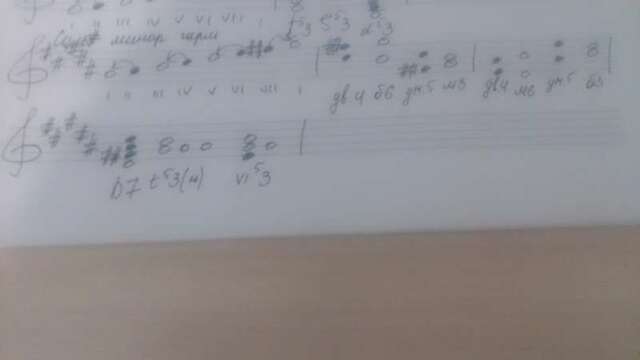 II III IV V VI VII I t⁵3 S⁵3 D⁵3
минор гарм
I II III IV V VI VII I ув4 б6 ум5 м3 ув4 м6 ум5 б3
D7 t⁵3(н) VI⁵3